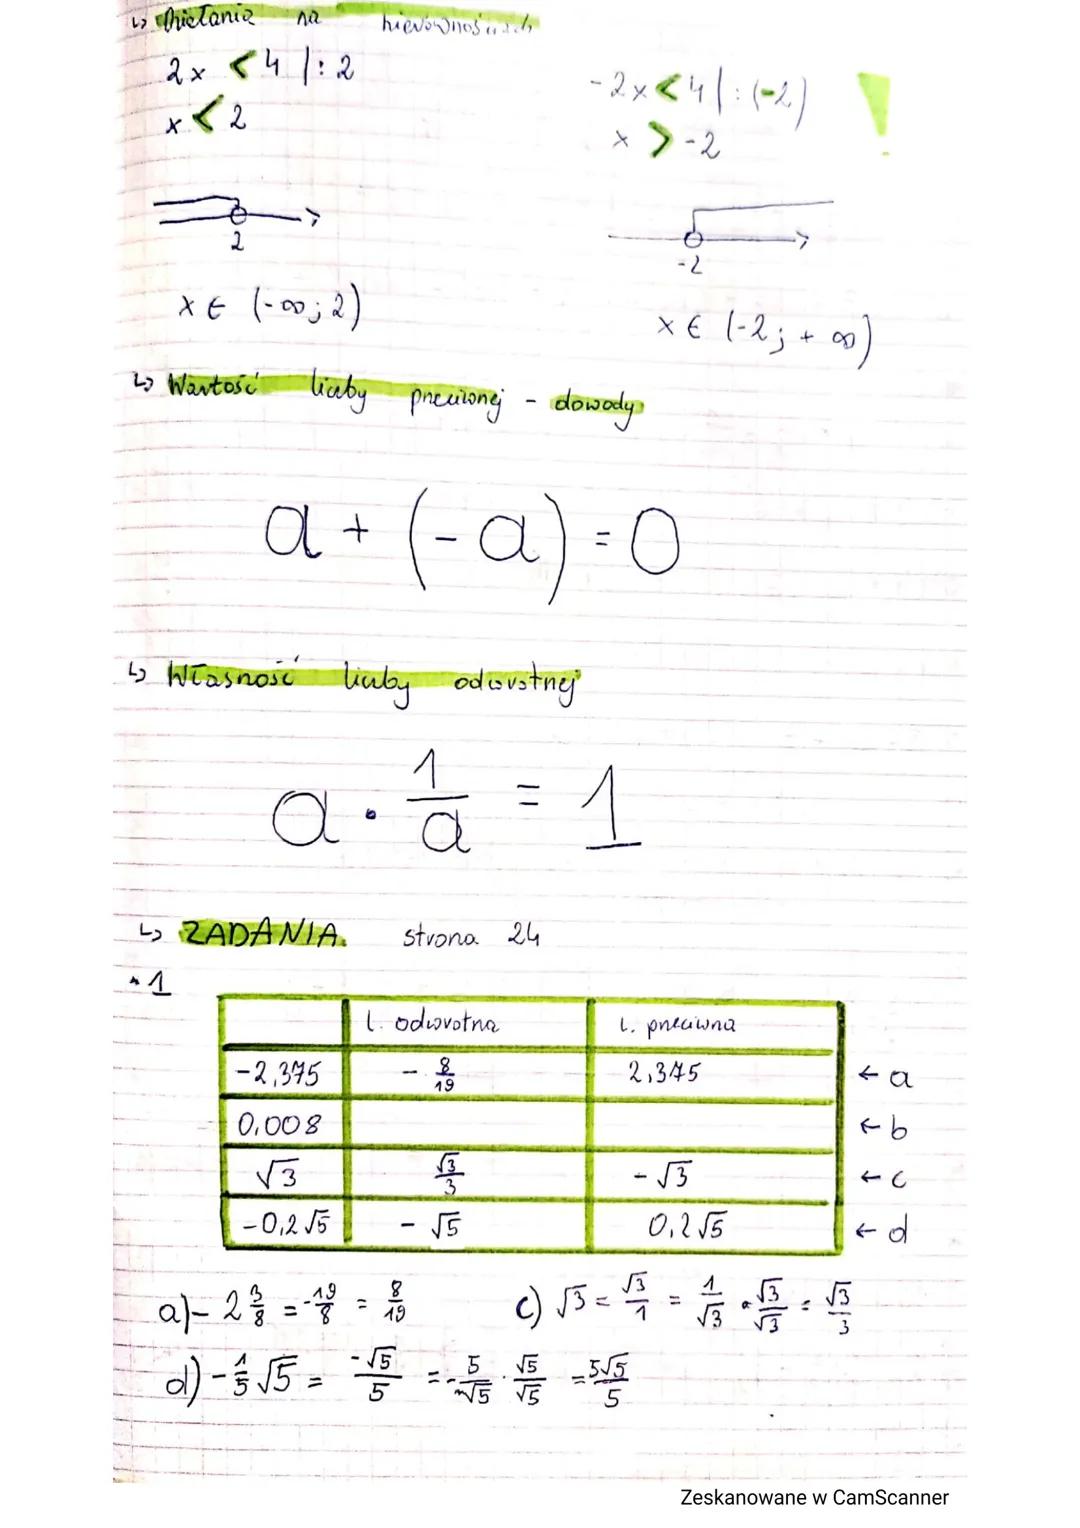 ↳ Działania na nierównościach
2x < 4 |: 2
x < 2
-2x < 4 |: (-2) !
x > -2
2
-2
x ∈ (-∞; 2)
x ∈ (-2; + ∞)
↳ Wartość liczby przeciwnej - dowody
a + (-a) = 0
↳ Własność liczby odwrotnej
a · 1/a = 1
↳ ZADANIA. strona 24
• 1
l. odwrotna l. przeciwna
-2,375 - 8/19 2,375 ← a
0,008 ← b
√3 √3/3 - √3 ← c
-0,2√5 - √5 0,2√5 ← d
a) - 2 3/8 = -19/8 = 8/19
c) √3 = √3/1 = 1/√3 · √3/√3 = √3/3
d) - 1/5 √5 = -√5/5 = - 5/√5 · √5/√5 = 5√5/5
Zeskanowane w CamScanner